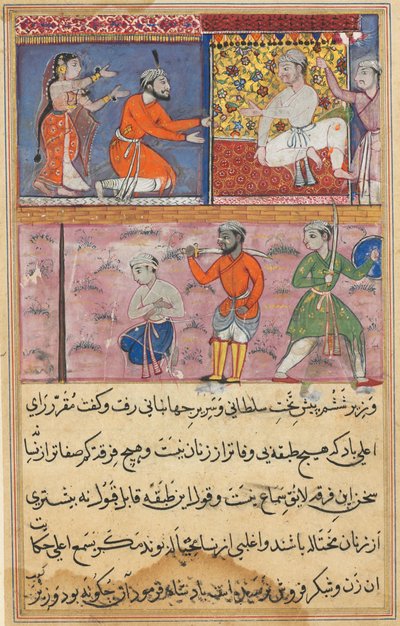 وزیر ششم پیش تخت سلطانی و سریر جهانبانی رفت و گفت مقرر رای
اعلی باد که هیچ طبقه بی وفاتر از زنان نیست و هیچ فرقه کم صفاتر از نسا
سخن این فرقه لایق سماع نیست و قول این طبقه قابل قبول نه بیشتری
از زنان محتاله باشند و اغلبی از نسا بوند مکر بسمع اعلی حکایت
آن زن و شکر فروش نرسیده است پادشاه فرمود آن چکونه بود وزیر